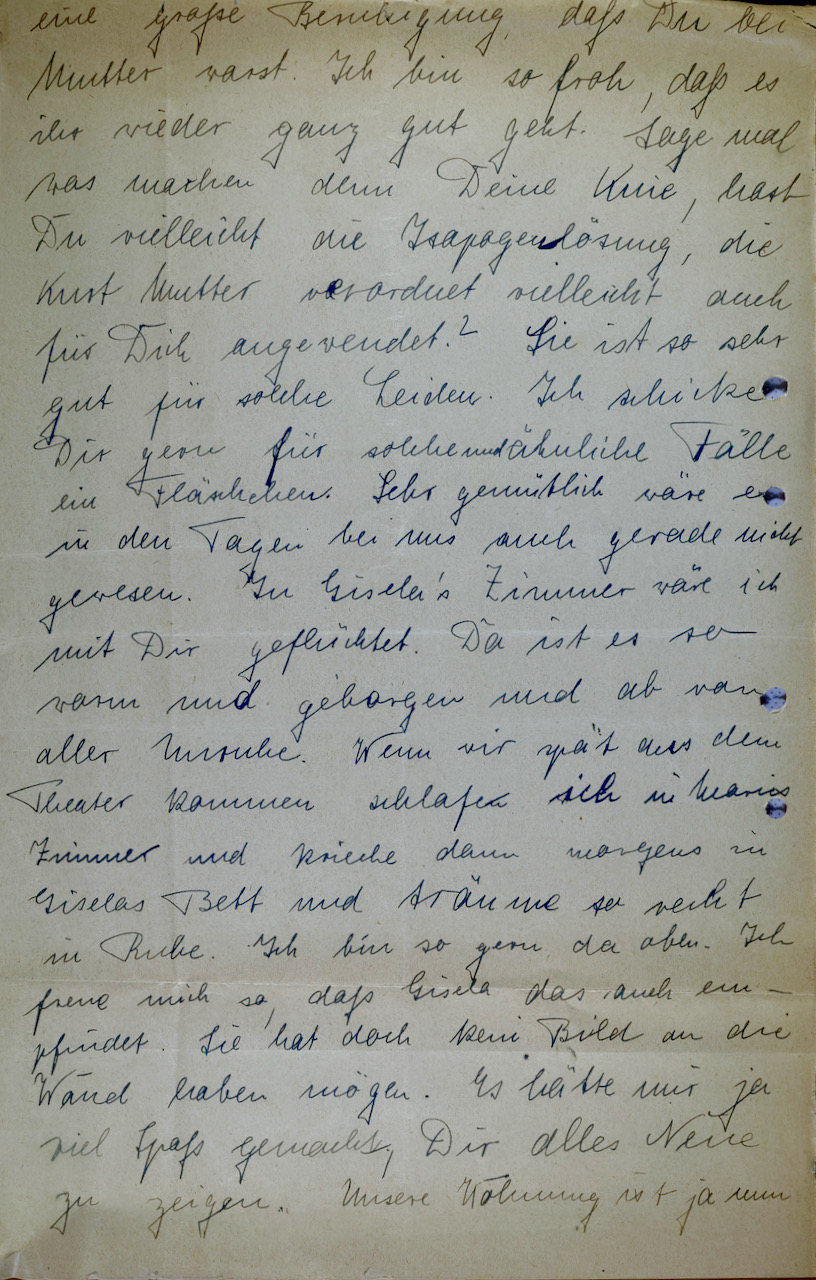 eine große Beruhigung, daß Du bei
Mutter warst. Ich bin so froh, daß es
ihr wieder ganz gut geht. Sage mal
was machen denn Deine Knie, hast
Du vielleicht die Isapogenlösung, die
Kurt Mutter verordnet vielleicht auch
für Dich angewendet.? Sie ist so sehr
gut für solche Leiden. Ich schicke
Dir gern für solche und ähnliche Fälle
ein Fläschchen. Sehr gemütlich wäre es
in den Tagen bei uns auch gerade nicht
gewesen. In Gisela's Zimmer wäre ich
mit Dir geflüchtet. Da ist es so
warm und geborgen und ab von
aller Unruhe. Wenn wir spät aus dem
Theater kommen schlafe ich in Marios
Zimmer und krieche dann morgens in
Giselas Bett und träume so recht
in Ruhe. Ich bin so gern da oben. Ich
freue mich so, daß Gisela das auch em-
pfindet. Sie hat doch kein Bild an die
Wand haben mögen. Es hätte mir ja
viel Spaß gemacht, Dir alles Neue
zu zeigen. Unsere Wohnung ist ja nun